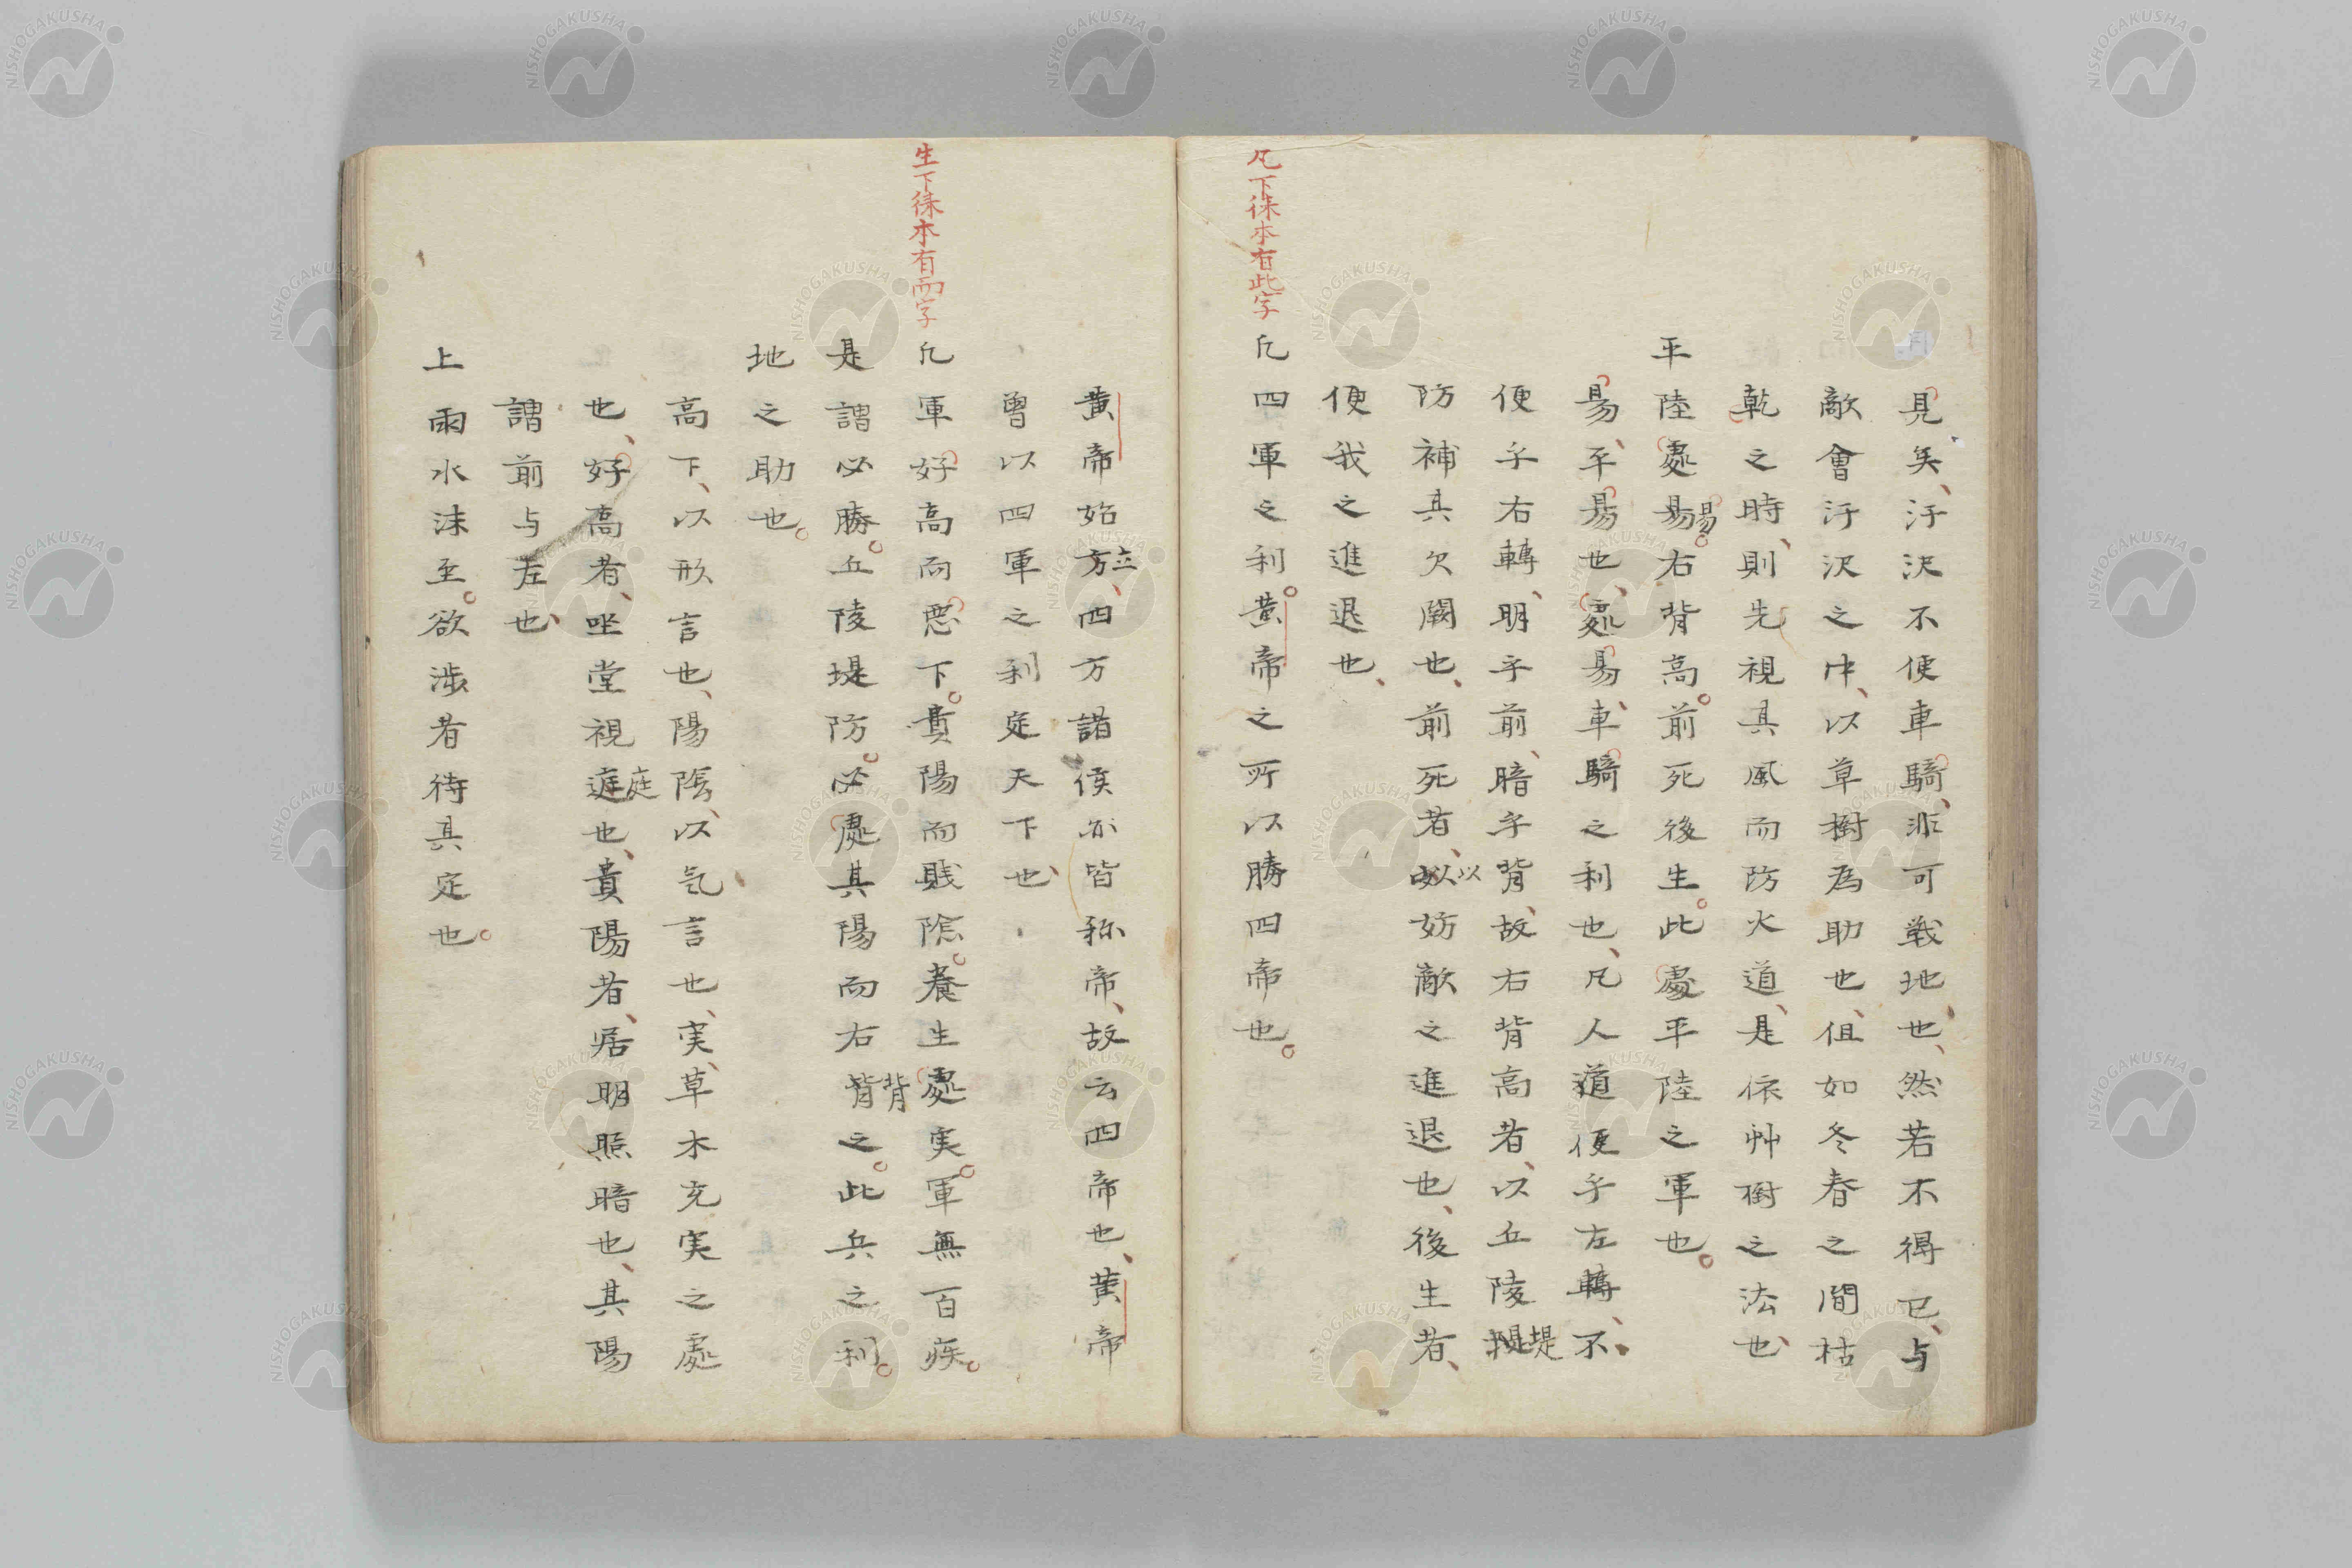 見矣、汙沢不便車騎、非可戦地也、然若不得已、与
敵會汙沢之中、以草樹為助也、但如冬春之間枯
乾之時、則先視其風而防火道、是依艸樹之法也、
平陸處易易。右背高。前死後生。此處平陸之軍也。
易、平易也、處易、車騎之利也、凡人道便乎左轉、不
便乎右轉、明乎前、暗乎背、故右背高者、以丘陵堤堤
防補其欠闕也、前死者、以以妨敵之進退也、後生者、
便我之進退也、
凡下徐本有此字
凡四軍之利。黄帝之所以勝四帝也。
黄帝始方立、四方諸侯亦皆称帝、故云四帝也、黄帝
曾以四軍之利定天下也、
生下徐本有而字
凡軍好高而悪下。貴陽而賎陰。養生處実。軍無百疾。
是謂必勝。丘陵堤防。必處其陽而右背背之。此兵之利。
地之助也。
高下、以形言也、陽陰、以気言也、実、草木充実之處
也、好高者、坐堂視庭庭也、貴陽者、居明照暗也、其陽
謂前与左也、
上雨水沫至。欲渉者待其定也。